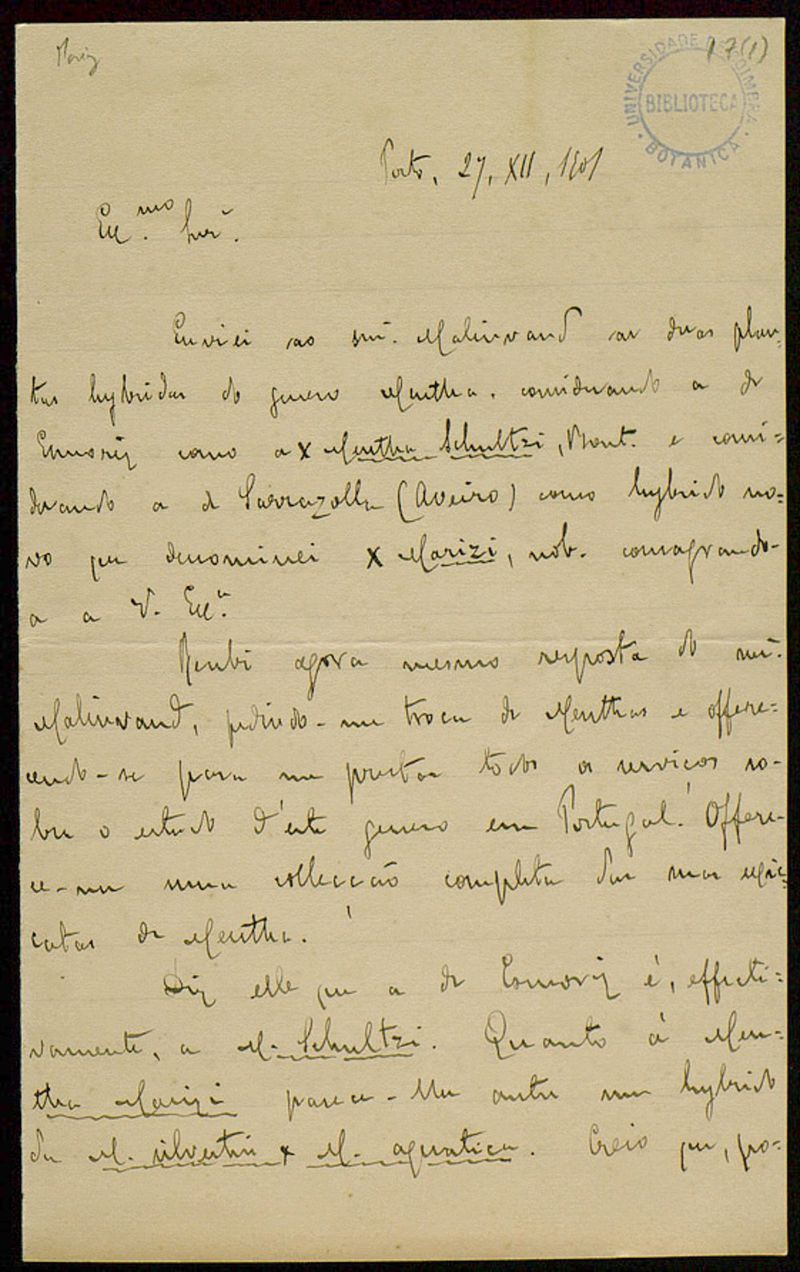 Mariz
17(1)
UNIVERSIDADE DE COIMBRA
BIBLIOTECA
BOTANICA
Porto, 27, XII, 1901
Ex.mo Snr.
Enviei ao snr. Malinvaud as duas plan-
tas hybridas do genero Mentha, considerando a de
Esmoriz como a x Mentha Schultzi, Bout. e consi-
derando a de Sarrazolla (Aveiro) como hybrido no-
vo que denominei x Marizi, nob. consagrando-
a a V. Exa.
Recebi agora mesmo resposta do snr.
Malinvaud, pedindo-me troca de Menthas e offere-
cendo-se para me prestar todos os serviços so-
bre o estudo d'este genero em Portugal! Offere-
ce-me uma collecção completa das suas exsic-
catas de Mentha!
Diz elle que a de Esmoriz é, effecti-
vamente, a M. Schultzi. Quanto á Men-
tha Marizi parece-lhe antes um hybrido
da M. silvestris x M. aquatica. Creio que, po-